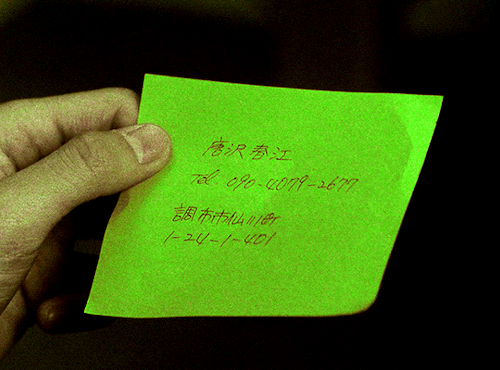 唐沢春江
Tel. 090-4079-2677
調布市仙川町
1-24-1-401